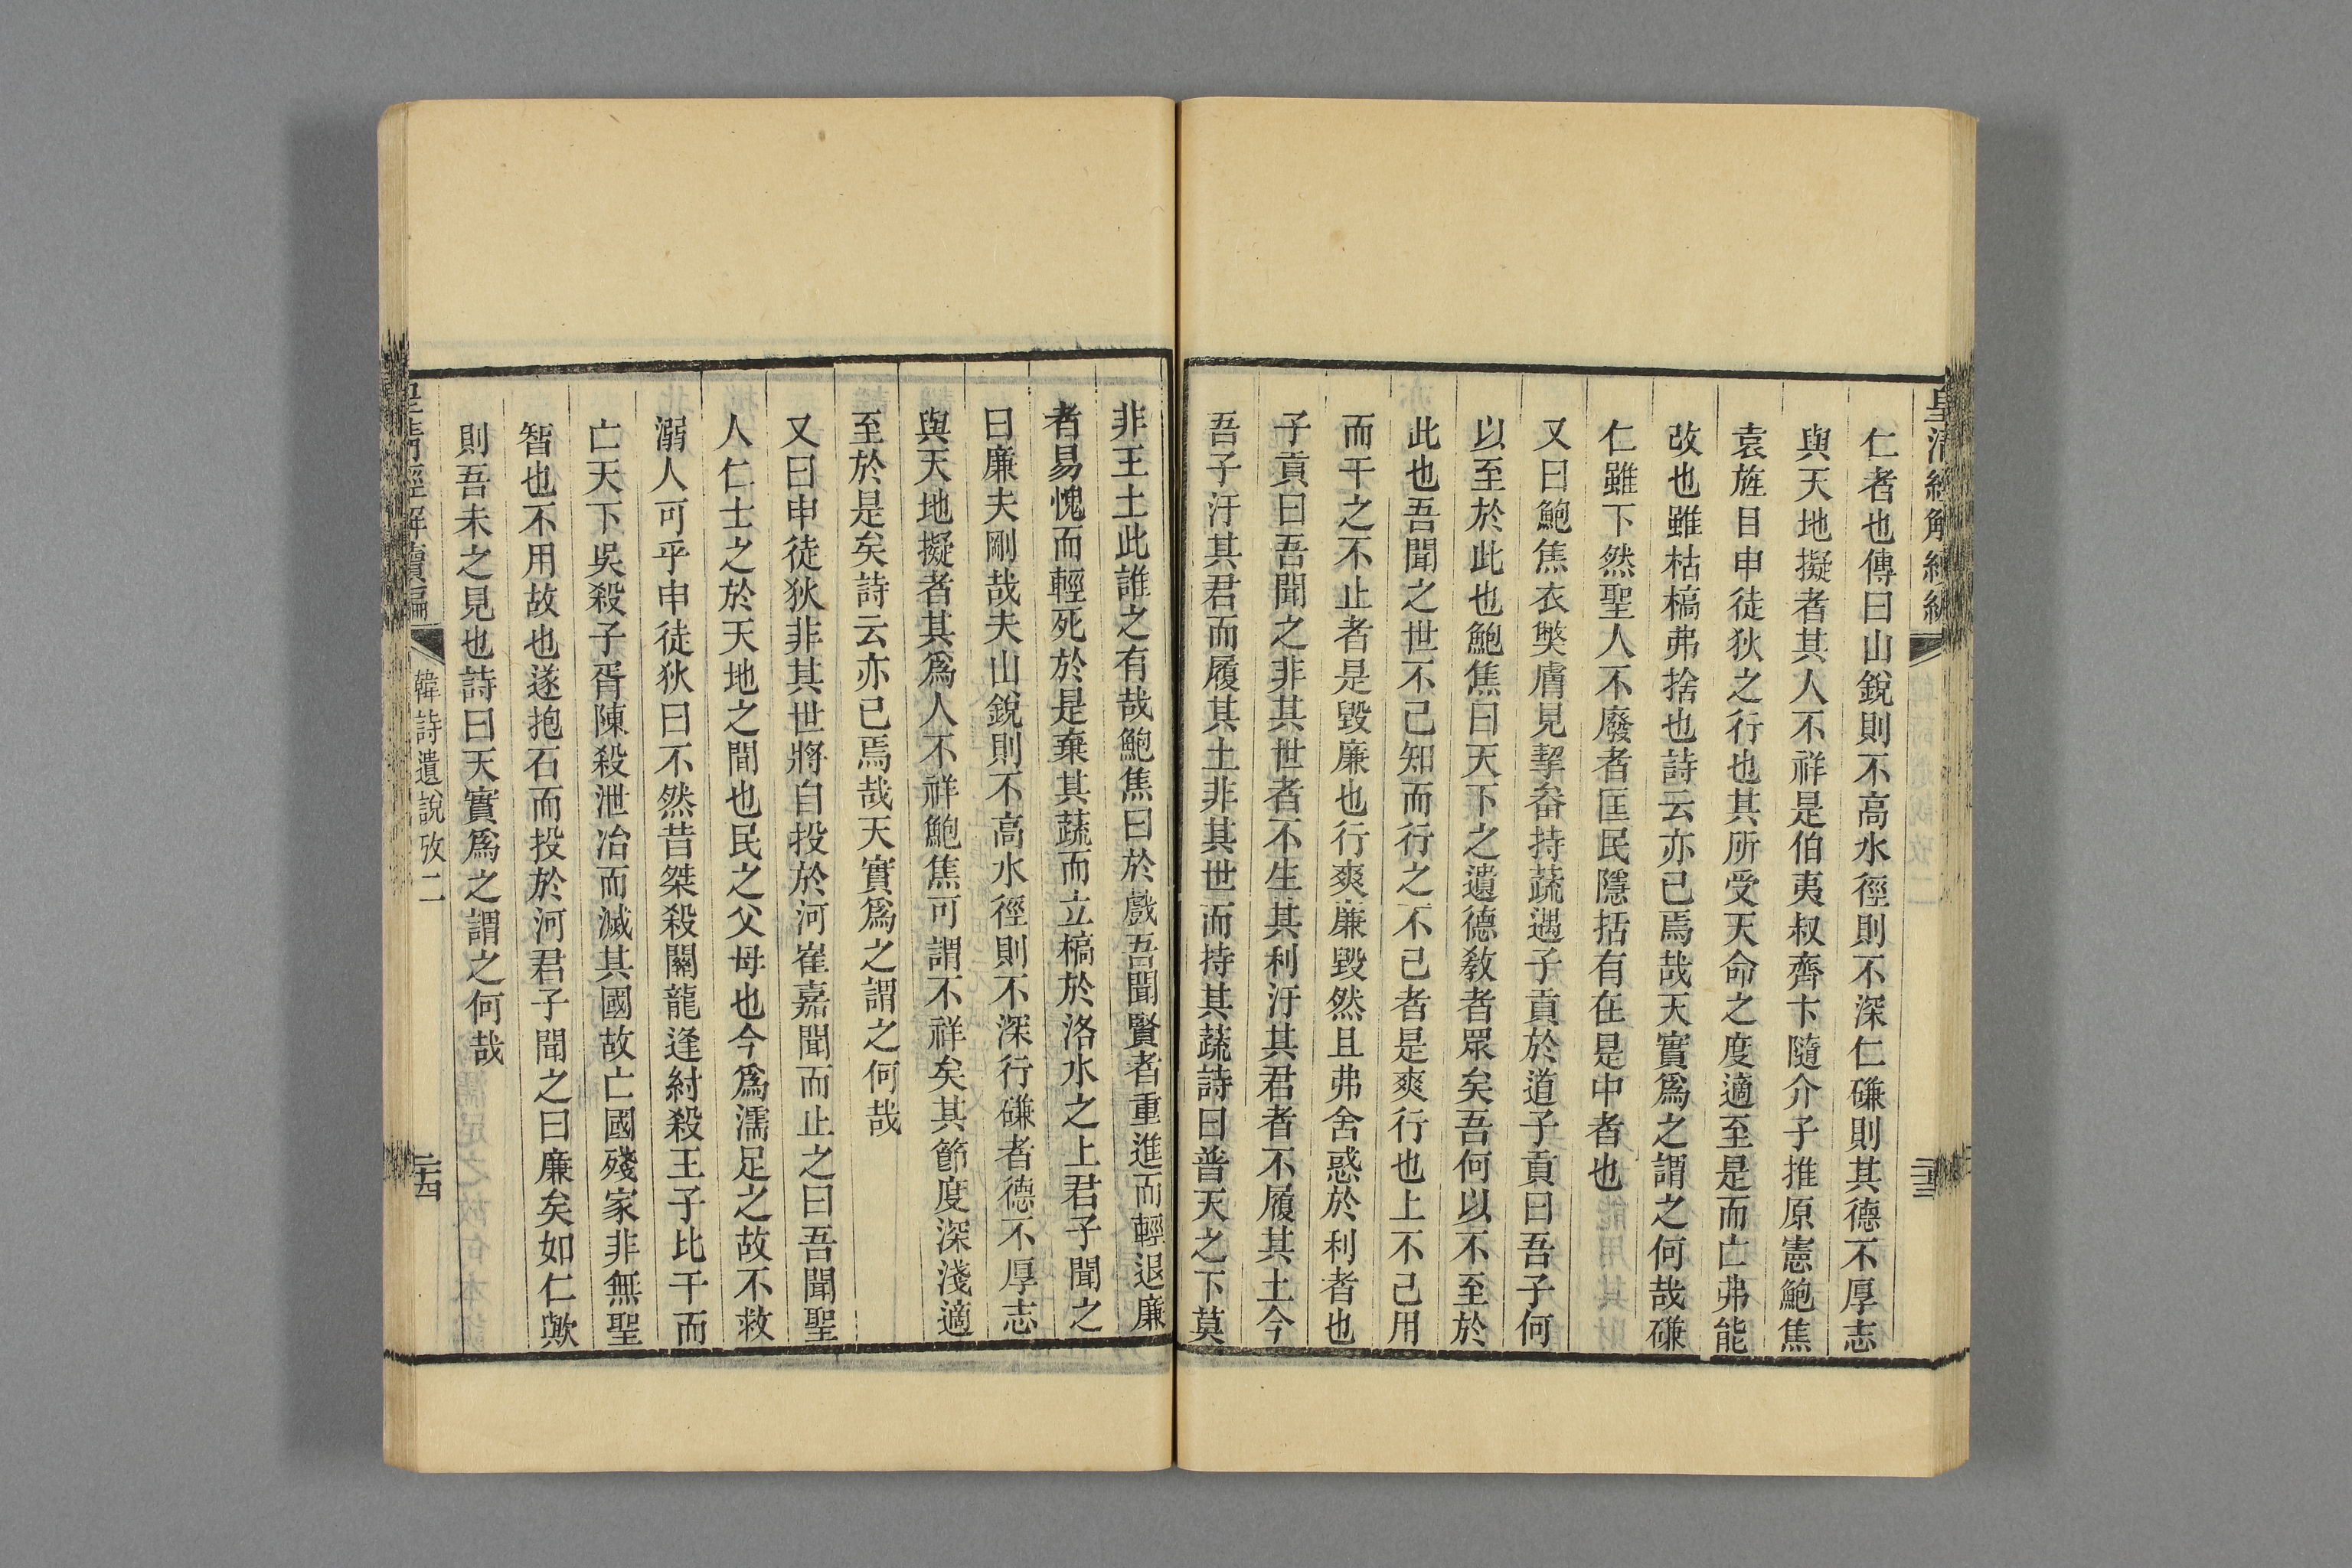 皇清經解續編
仁者也傳曰山銳則不高水徑則不深仁磏則其德不厚志
與天地擬者其人不祥是伯夷叔齊卞隨介子推原憲鮑焦
袁旌目申徒狄之行也其所受天命之度適至是而亡弗能
改也雖枯槁弗捨也詩云亦已焉哉天實爲之謂之何哉磏
仁雖下然聖人不廢者匡民隱括有在是中者也
又曰鮑焦衣獘膚見挈畚持蔬遇子貢於道子貢曰吾子何
以至於此也鮑焦曰天下之遺德敎者眾矣吾何以不至於
此也吾聞之世不己知而行之不已者是爽行也上不己用
而干之不止者是毀廉也行爽廉毀然且弗舍惑於利者也
子貢曰吾聞之非其世者不生其利汙其君者不履其土今
吾子汙其君而履其土非其世而持其蔬詩曰普天之下莫
二十三
非王土此誰之有哉鮑焦曰於戲吾聞賢者重進而輕退廉
者易愧而輕死於是棄其蔬而立槁於洛水之上君子聞之
曰廉夫剛哉夫山銳則不高水徑則不深行磏者德不厚志
與天地擬者其爲人不祥鮑焦可謂不祥矣其節度深淺適
至於是矣詩云亦已焉哉天實爲之謂之何哉
又曰申徒狄非其世將自投於河崔嘉聞而止之曰吾聞聖
人仁士之於天地之間也民之父母也今爲濡足之故不救
溺人可乎申徒狄曰不然昔桀殺關龍逢紂殺王子比干而
亡天下吳殺子胥陳殺泄冶而滅其國故亡國殘家非無聖
智也不用故也遂抱石而投於河君子聞之曰廉矣如仁歟
則吾未之見也詩曰天實爲之謂之何哉
皇清經解續編
韓詩遺說攷二
二十四